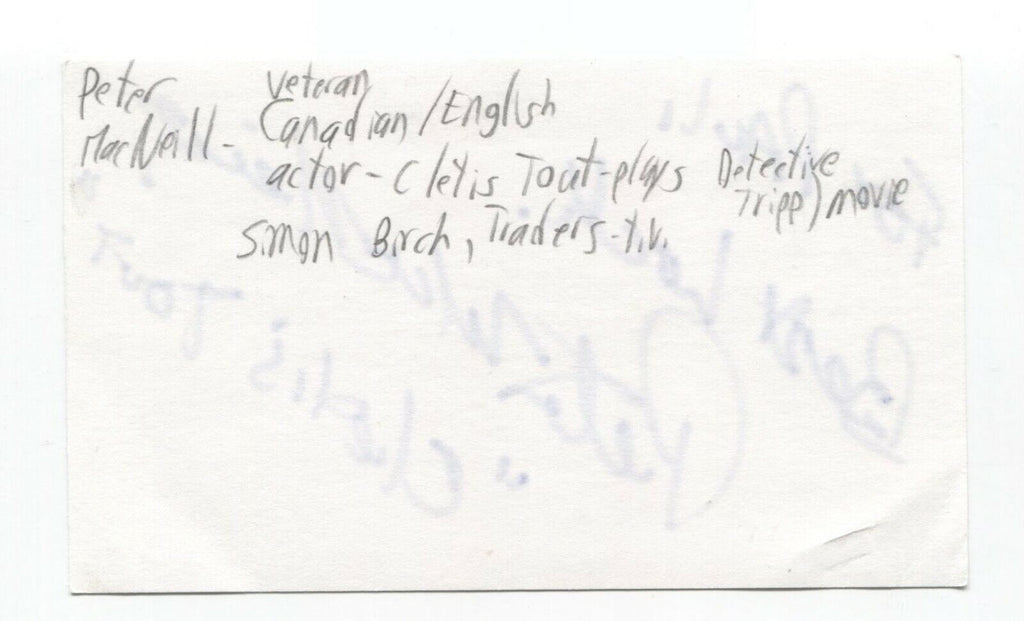 Peter MacNeill - veteran
Canadian/English
actor - Cletis Tout - plays Detective
Tripp) movie
Simon Birch, Traders - t.v.